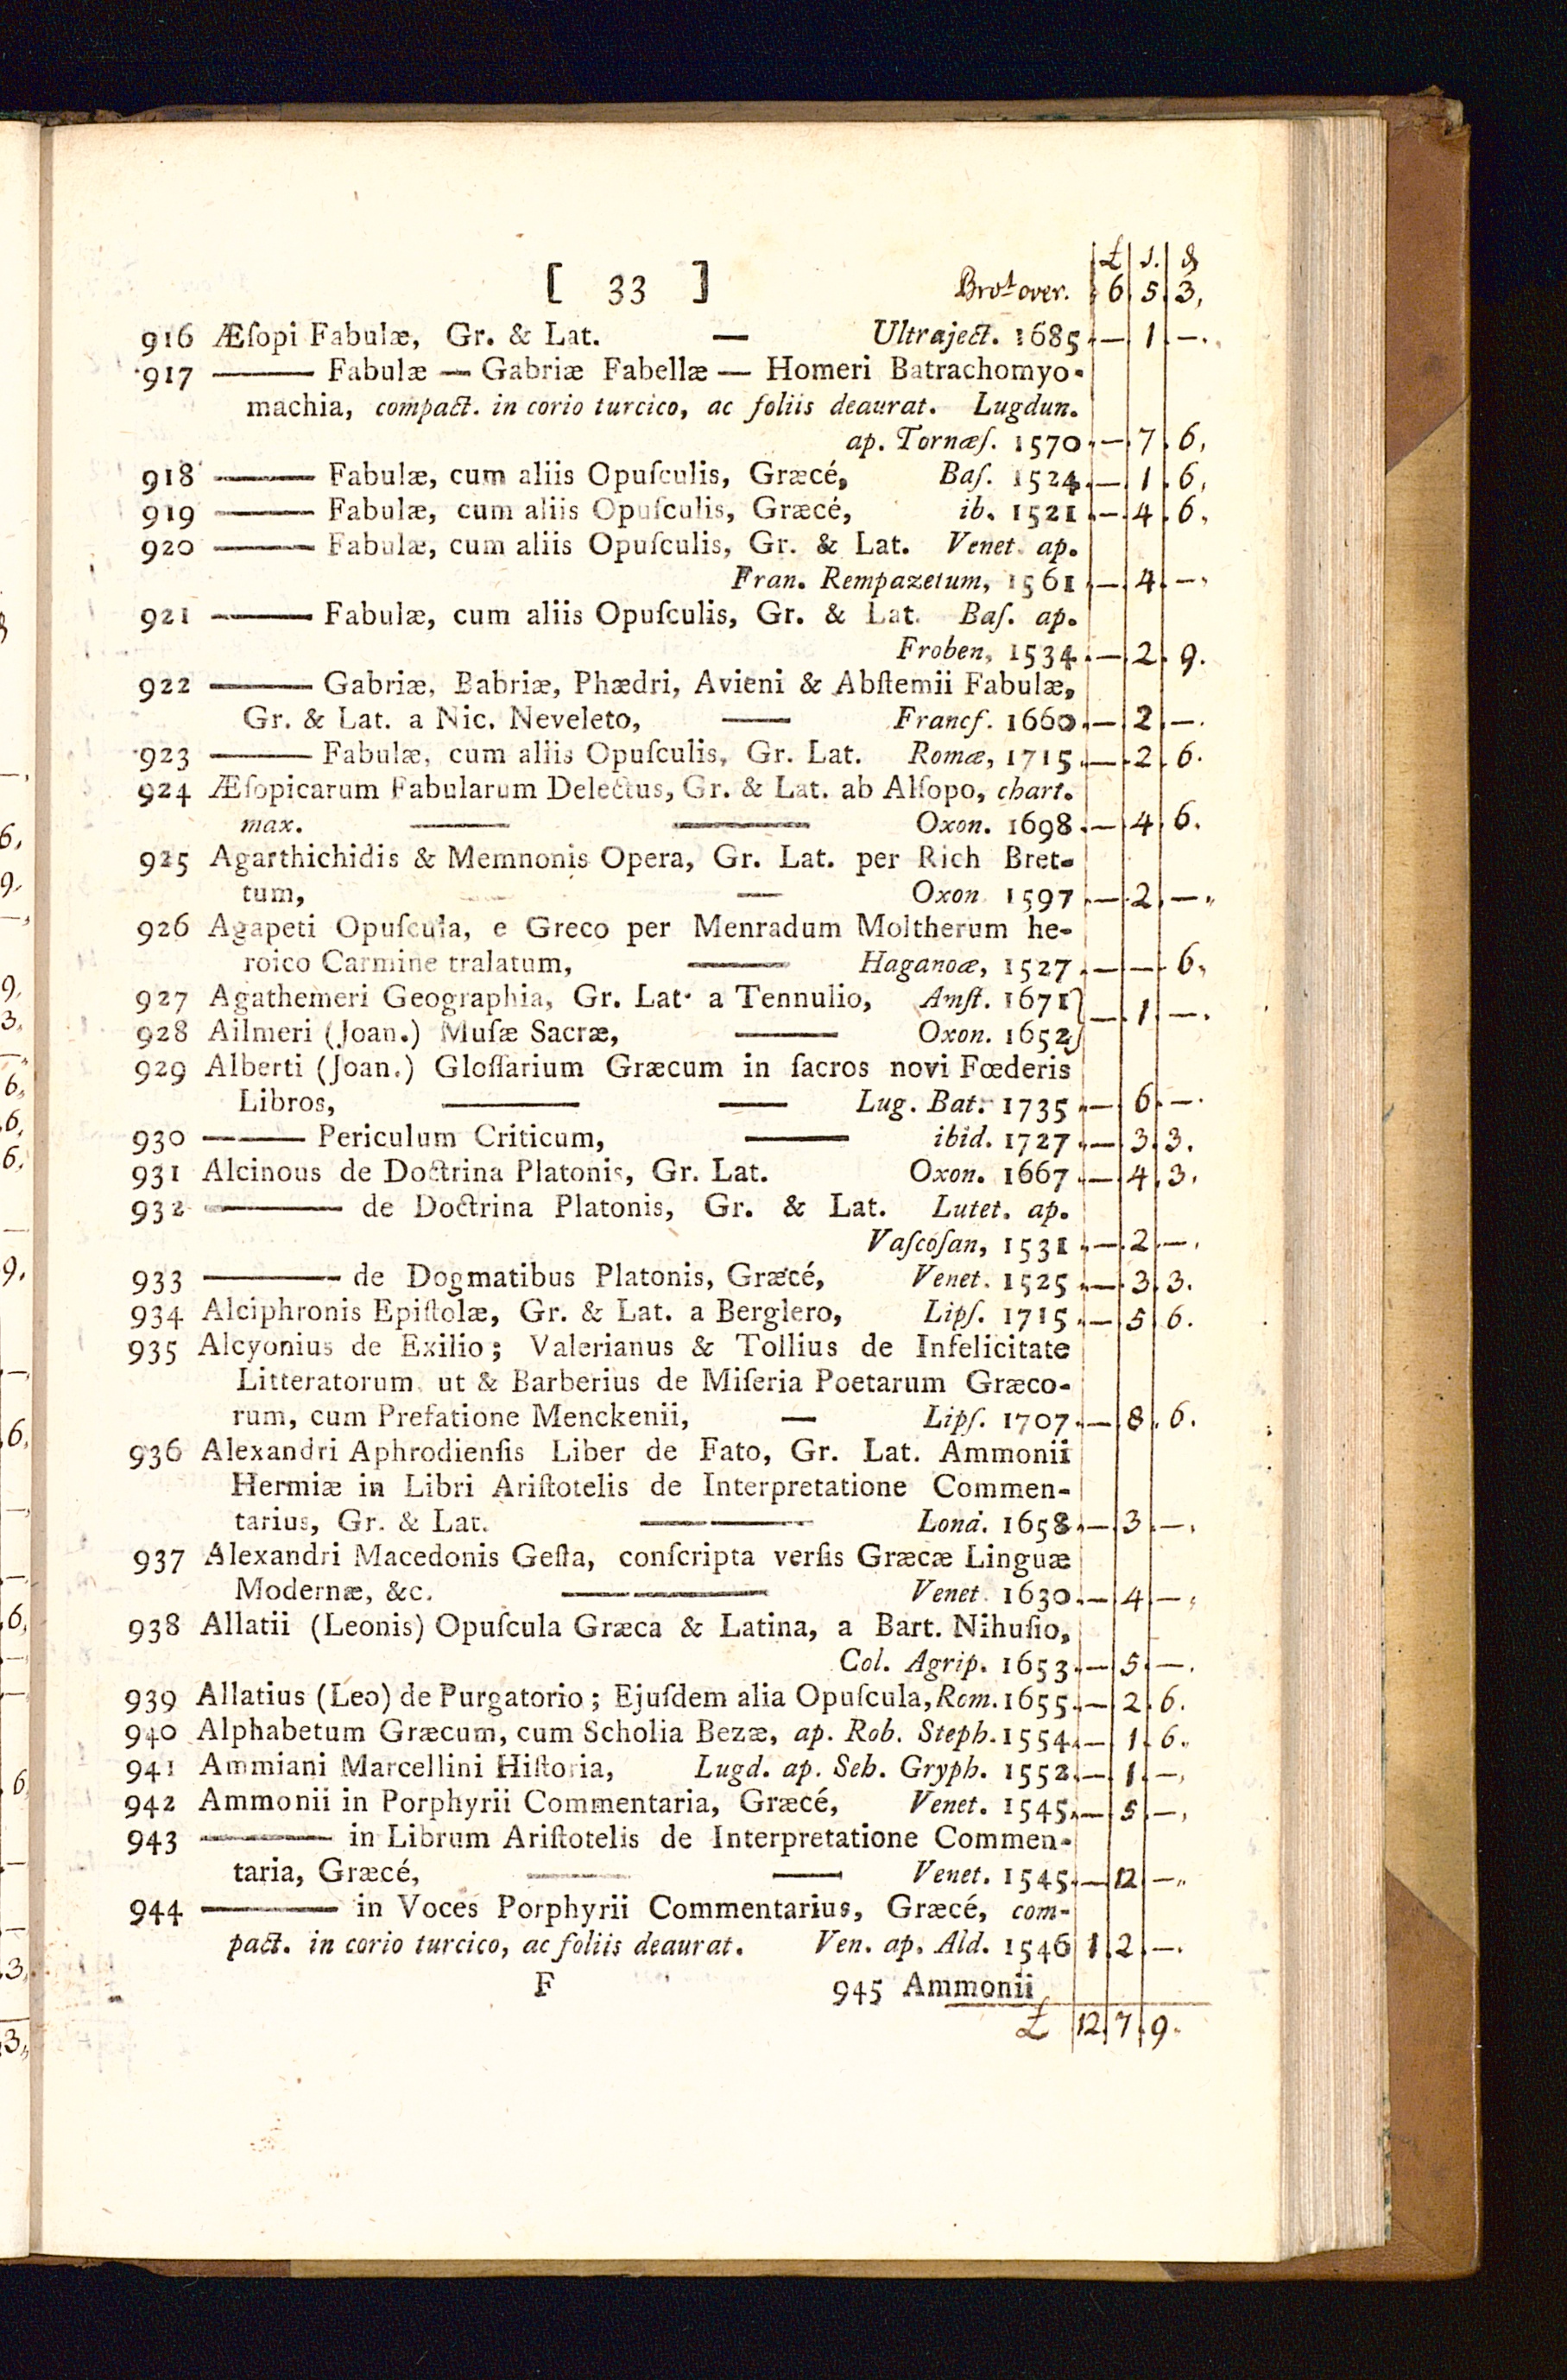 £ s. d
[ 33 ] Brot over. 6 5 3,
916 Æſopi Fabulæ, Gr. & Lat. — Ultraject. 1685 — 1 —.
917 —— Fabulæ — Gabriæ Fabellæ — Homeri Batrachomyo-
machia, compact. in corio turcico, ac foliis deaurat. Lugdun.
ap. Tornæſ. 1570 — 7 6,
918 —— Fabulæ, cum aliis Opuſculis, Græcé, Baſ. 1524 — 1 6,
919 —— Fabulæ, cum aliis Opuſculis, Græcé, ib. 1521 — 4 6,
920 —— Fabulæ, cum aliis Opuſculis, Gr. & Lat. Venet. ap.
Fran. Rempazetum, 1561 — 4 —,
921 —— Fabulæ, cum aliis Opuſculis, Gr. & Lat. Baſ. ap.
Froben, 1534 — 2 9.
922 —— Gabriæ, Babriæ, Phædri, Avieni & Abſtemii Fabulæ,
Gr. & Lat. a Nic. Neveleto, —— Francf. 1660 — 2 —.
923 —— Fabulæ, cum aliis Opuſculis, Gr. Lat. Romæ, 1715 — 2 6.
924 Æſopicarum Fabularum Delectus, Gr. & Lat. ab Alſopo, chart.
max. —— —— Oxon. 1698 — 4 6.
925 Agarthichidis & Memnonis Opera, Gr. Lat. per Rich Bret-
tum, — Oxon. 1597 — 2 —.
926 Agapeti Opuſcula, e Greco per Menradum Moltherum he-
roico Carmine tralatum, —— Haganoæ, 1527 — — 6,
927 Agathemeri Geographia, Gr. Lat. a Tennulio, Amſt. 1671}
928 Ailmeri (Joan.) Muſæ Sacræ, —— Oxon. 1652} — 1 —.
929 Alberti (Joan.) Gloſſarium Græcum in ſacros novi Fœderis
Libros, —— —— Lug. Bat. 1735 — 6 —.
930 —— Periculum Criticum, —— ibid. 1727 — 3 3.
931 Alcinous de Doctrina Platonis, Gr. Lat. Oxon. 1667 — 4 3,
932 —— de Doctrina Platonis, Gr. & Lat. Lutet. ap.
Vaſcoſan, 1531 — 2 —,
933 —— de Dogmatibus Platonis, Græcé, Venet. 1525 — 3 3.
934 Alciphronis Epiſtolæ, Gr. & Lat. a Berglero, Lipſ. 1715 — 5 6.
935 Alcyonius de Exilio; Valerianus & Tollius de Infelicitate
Litteratorum, ut & Barberius de Miſeria Poetarum Græco-
rum, cum Prefatione Menckenii, — Lipſ. 1707 — 8 6.
936 Alexandri Aphrodienſis Liber de Fato, Gr. Lat. Ammonii
Hermiæ in Libri Ariſtotelis de Interpretatione Commen-
tarius, Gr. & Lat. —— Lond. 1658 — 3 —,
937 Alexandri Macedonis Geſta, conſcripta verſis Græcæ Linguæ
Modernæ, &c. —— Venet. 1630 — 4 —,
938 Allatii (Leonis) Opuſcula Græca & Latina, a Bart. Nihuſio,
Col. Agrip. 1653 — 5 —.
939 Allatius (Leo) de Purgatorio; Ejuſdem alia Opuſcula, Rom. 1655 — 2 6.
940 Alphabetum Græcum, cum Scholia Bezæ, ap. Rob. Steph. 1554 — 1 6.
941 Ammiani Marcellini Hiſtoria, Lugd. ap. Seb. Gryph. 1552 — 1 —,
942 Ammonii in Porphyrii Commentaria, Græcé, Venet. 1545 — 5 —,
943 —— in Librum Ariſtotelis de Interpretatione Commen-
taria, Græcé, —— —— Venet. 1545 — 12 —.
944 —— in Voces Porphyrii Commentarius, Græcé, com-
pact. in corio turcico, ac foliis deaurat. Ven. ap. Ald. 1546 1 2 —.
F 945 Ammonii
£ 12 7 9.